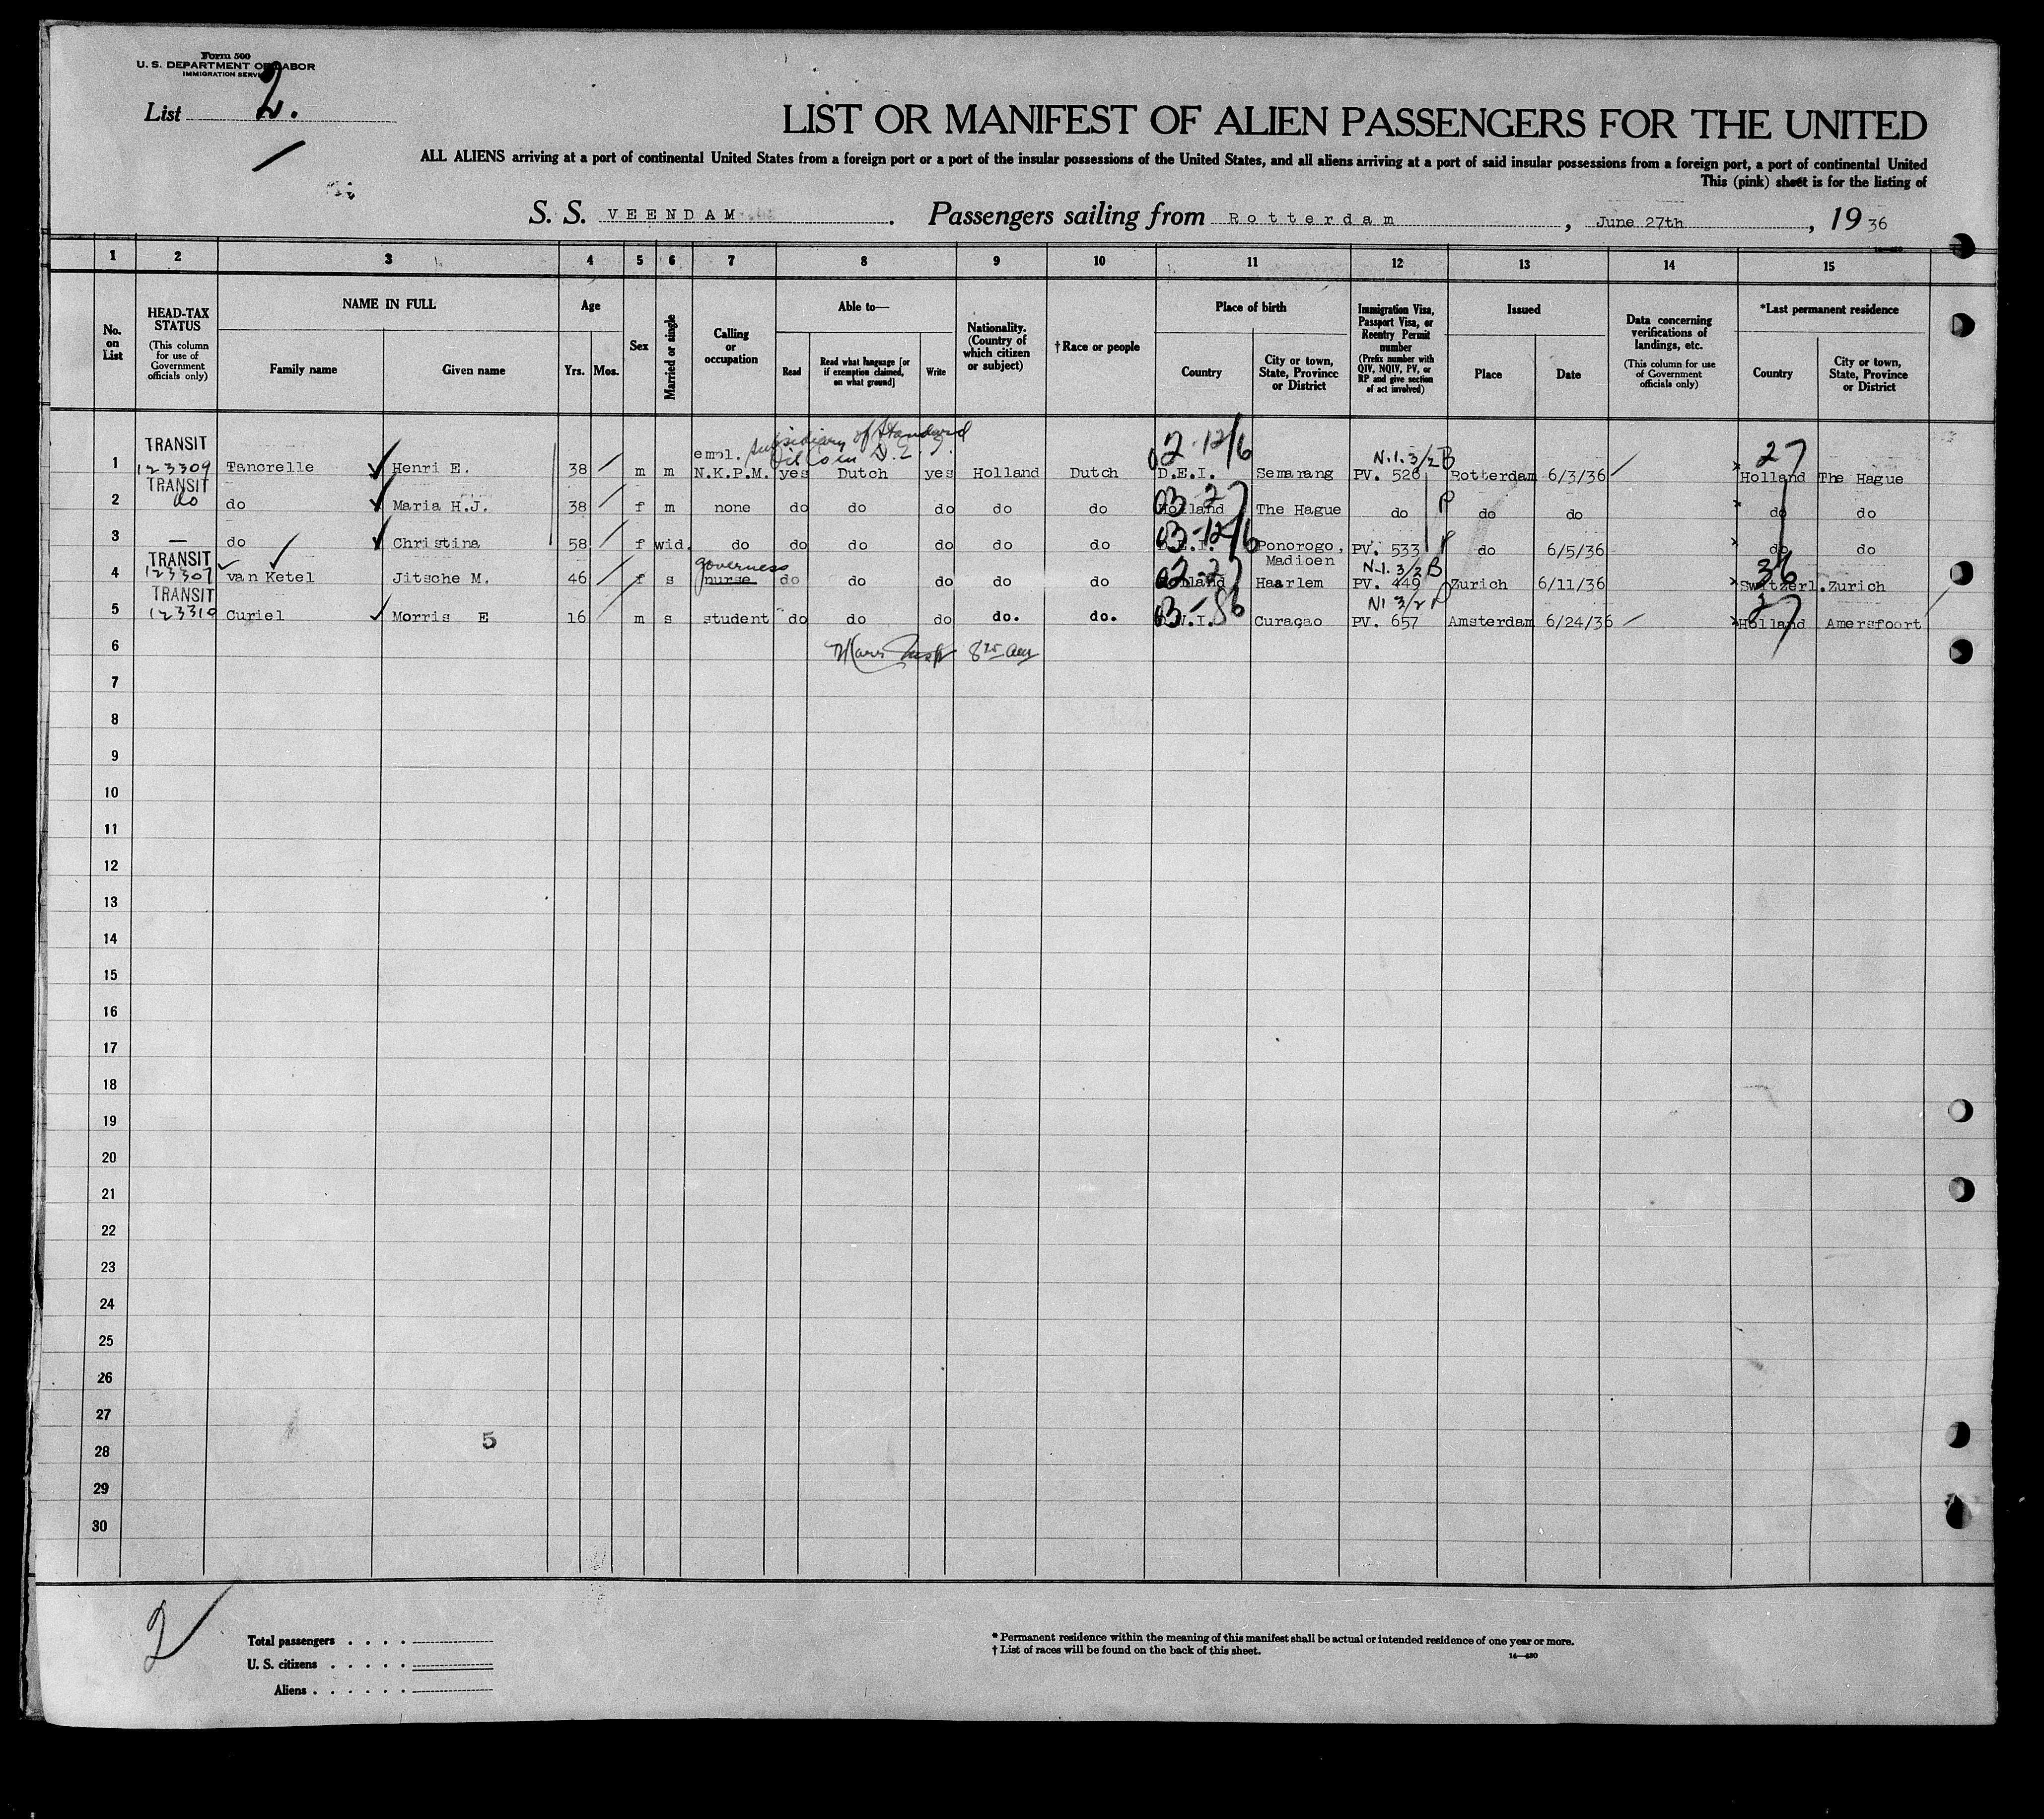 Form 500
U. S. DEPARTMENT OF LABOR
IMMIGRATION SERVICE
List 2.
LIST OR MANIFEST OF ALIEN PASSENGERS FOR THE UNITED
ALL ALIENS arriving at a port of continental United States from a foreign port or a port of the insular possessions of the United States, and all aliens arriving at a port of said insular possessions from a foreign port, a port of continental United
This (pink) sheet is for the listing of
S. S. VEENDAM. Passengers sailing from Rotterdam, June 27th, 1936
1 2 3 4 5 6 7 8 9 10 11 12 13 14 15
No. on List
HEAD-TAX STATUS
(This column for use of Government officials only)
NAME IN FULL
Family name
Given name
Age
Yrs.
Mos.
Sex
Married or single
Calling or occupation
Able to—
Read
Read what language [or if exemption claimed, on what ground]
Write
Nationality. (Country of which citizen or subject)
† Race or people
Place of birth
Country
City or town, State, Province or District
Immigration Visa, Passport Visa, or Reentry Permit number
(Prefix number with QIV, NQIV, PV, or RP and give section of act involved)
Issued
Place
Date
Data concerning verifications of landings, etc.
(This column for use of Government officials only)
*Last permanent residence
Country
City or town, State, Province or District
TRANSIT
empl. subsidiary of Standard Oil Co in D.E.I. 2-12/6 N.I. 3/2 B 27
1 123309 Tancrelle Henri E. 38 m m N.K.P.M. yes Dutch yes Holland Dutch D.E.I. Semarang PV. 526 Rotterdam 6/3/36 Holland The Hague
TRANSIT
2 do do Maria H.J. 38 f m none do do do do do Holland The Hague do do do do do
3 — do Christina 58 f wid. do do do do do do D.E.I. Ponorogo, Madioen PV. 533 do 6/5/36 do do
TRANSIT
governess N.I. 3/2 B 36
4 123307 van Ketel Jitsche M. 46 f s nurse do do do do do Holland Haarlem PV. 449 Zurich 6/11/36 Switzerl. Zurich
TRANSIT
NI 3/2 27
5 123310 Curiel Morris E 16 m s student do do do do. do. D.W.I. Curaçao PV. 657 Amsterdam 6/24/36 Holland Amersfoort
6
7
8
9
10
11
12
13
14
15
16
17
18
19
20
21
22
23
24
25
26
27
5
28
29
30
2
Total passengers
U. S. citizens
Aliens
* Permanent residence within the meaning of this manifest shall be actual or intended residence of one year or more.
† List of races will be found on the back of this sheet.
14—430